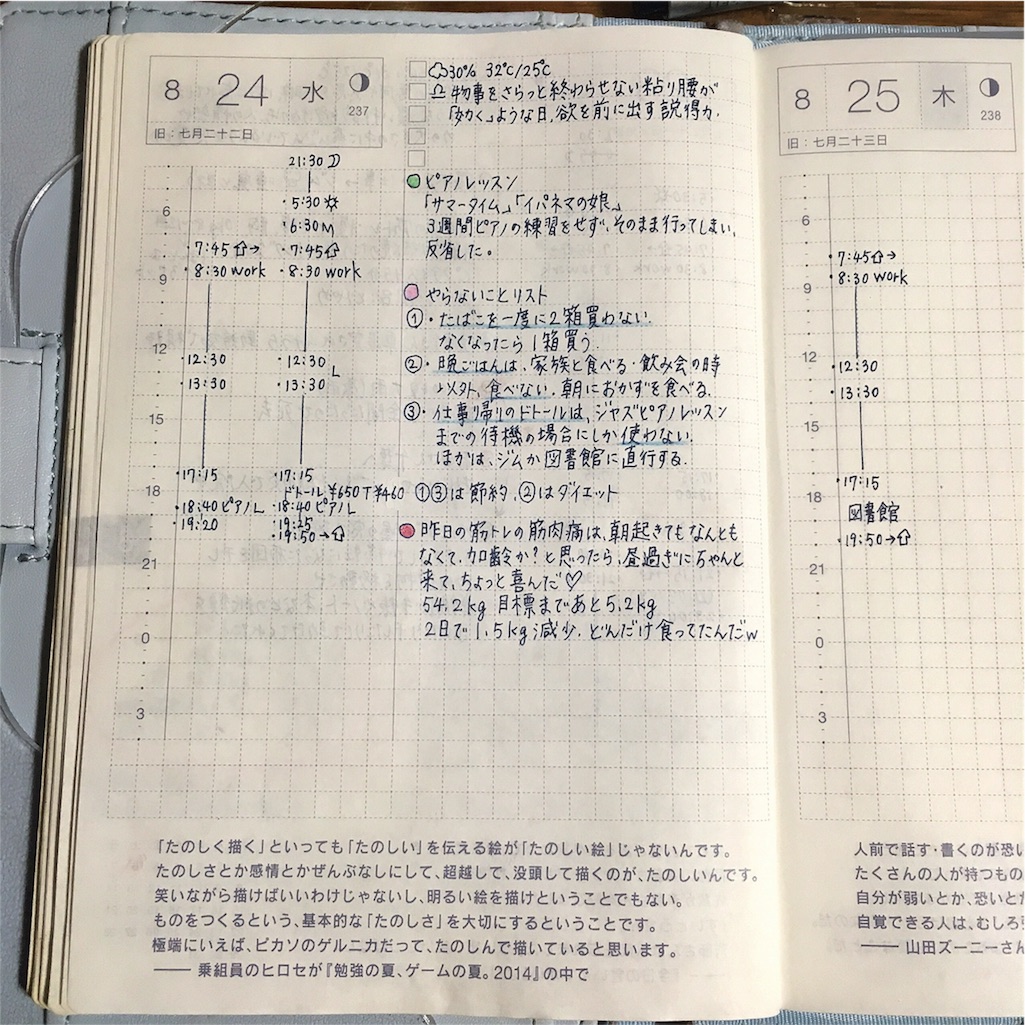 8 24 水
237
旧：七月二十二日
30% 32℃/25℃
♎ 物事をさらっと終わらせない粘り腰が
「効く」ような日。欲を前に出す説得力。
ピアノレッスン
「サマータイム」「イパネマの娘」
3週間ピアノの練習をせず、そのまま行ってしまい、
反省した。
やらないことリスト
①・たばこを一度に2箱買わない。
なくなったら1箱買う。
②・晩ごはんは、家族と食べる・飲み会の時
以外、食べない。朝におかずを食べる。
③・仕事帰りのドトールは、ジャズピアノレッスン
までの待機の場合にしか使わない。
ほかは、ジムか図書館に直行する。
①③は節約、②はダイエット
昨日の筋トレの筋肉痛は、朝起きてもなんとも
なくて、加齢か？と思ったら、昼過ぎにちゃんと
来て、ちょっと喜んだ♡
54.2kg 目標まであと5.2kg
2日で1.5kg減少。どんだけ食ってたんだw
21:30
・5:30
6
・6:30 M
・7:45→ ・7:45
・8:30 work ・8:30 work
9
12
・12:30 ・12:30
L
・13:30 ・13:30
15
・17:15 ・17:15
18
ドトール ¥650 T ¥460
・18:40 ピアノL ・18:40 ピアノL
・19:20 ・19:25
・19:50→
21
0
3
「たのしく描く」といっても「たのしい」を伝える絵が「たのしい絵」じゃないんです。
たのしさとか感情とかぜんぶなしにして、超越して、没頭して描くのが、たのしいんです。
笑いながら描けばいいわけじゃないし、明るい絵を描けということでもない。
ものをつくるという、基本的な「たのしさ」を大切にするということです。
極端にいえば、ピカソのゲルニカだって、たのしんで描いていると思います。
—— 乗組員のヒロセが『勉強の夏、ゲームの夏。2014』の中で
8 25 木
238
旧：七月二十三日
6
・7:45→
・8:30 work
9
12
・12:30
・13:30
15
・17:15
18
図書館
・19:50→
21
0
3
人前で話す・書くのが恐い
たくさんの人が持つもの
自分が弱いとか、恐いとか
自覚できる人は、むしろ
—— 山田ズーニーさん